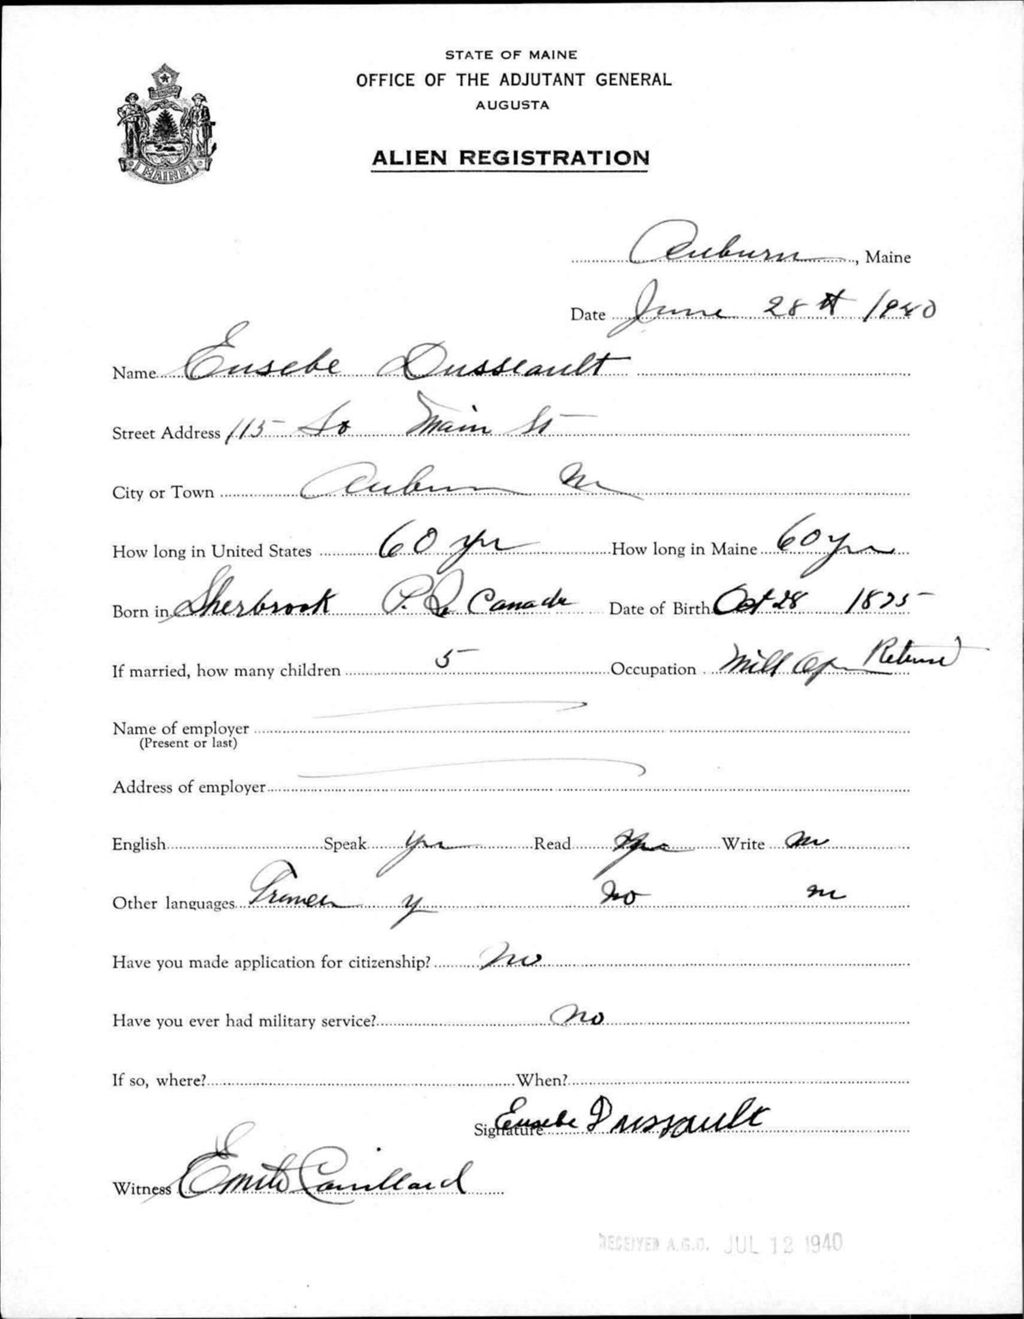 STATE OF MAINE
OFFICE OF THE ADJUTANT GENERAL
AUGUSTA
ALIEN REGISTRATION
MAINE
Auburn, Maine
Date June 28th 1940
Name Eusebe Dusseault
Street Address 115 So Main St
City or Town Auburn Me
How long in United States 60 yrs How long in Maine 60 yrs
Born in Sherbrook P.Q. Canada Date of Birth Oct 28 1875
If married, how many children 5 Occupation Mill Op Retired
Name of employer
(Present or last)
Address of employer
English Speak Yes Read Yes Write no
Other languages French y no no
Have you made application for citizenship? No
Have you ever had military service? No
If so, where? When?
Signature Eusebe Dussault
Witness
RECEIVED A.G.O. JUL 12 1940